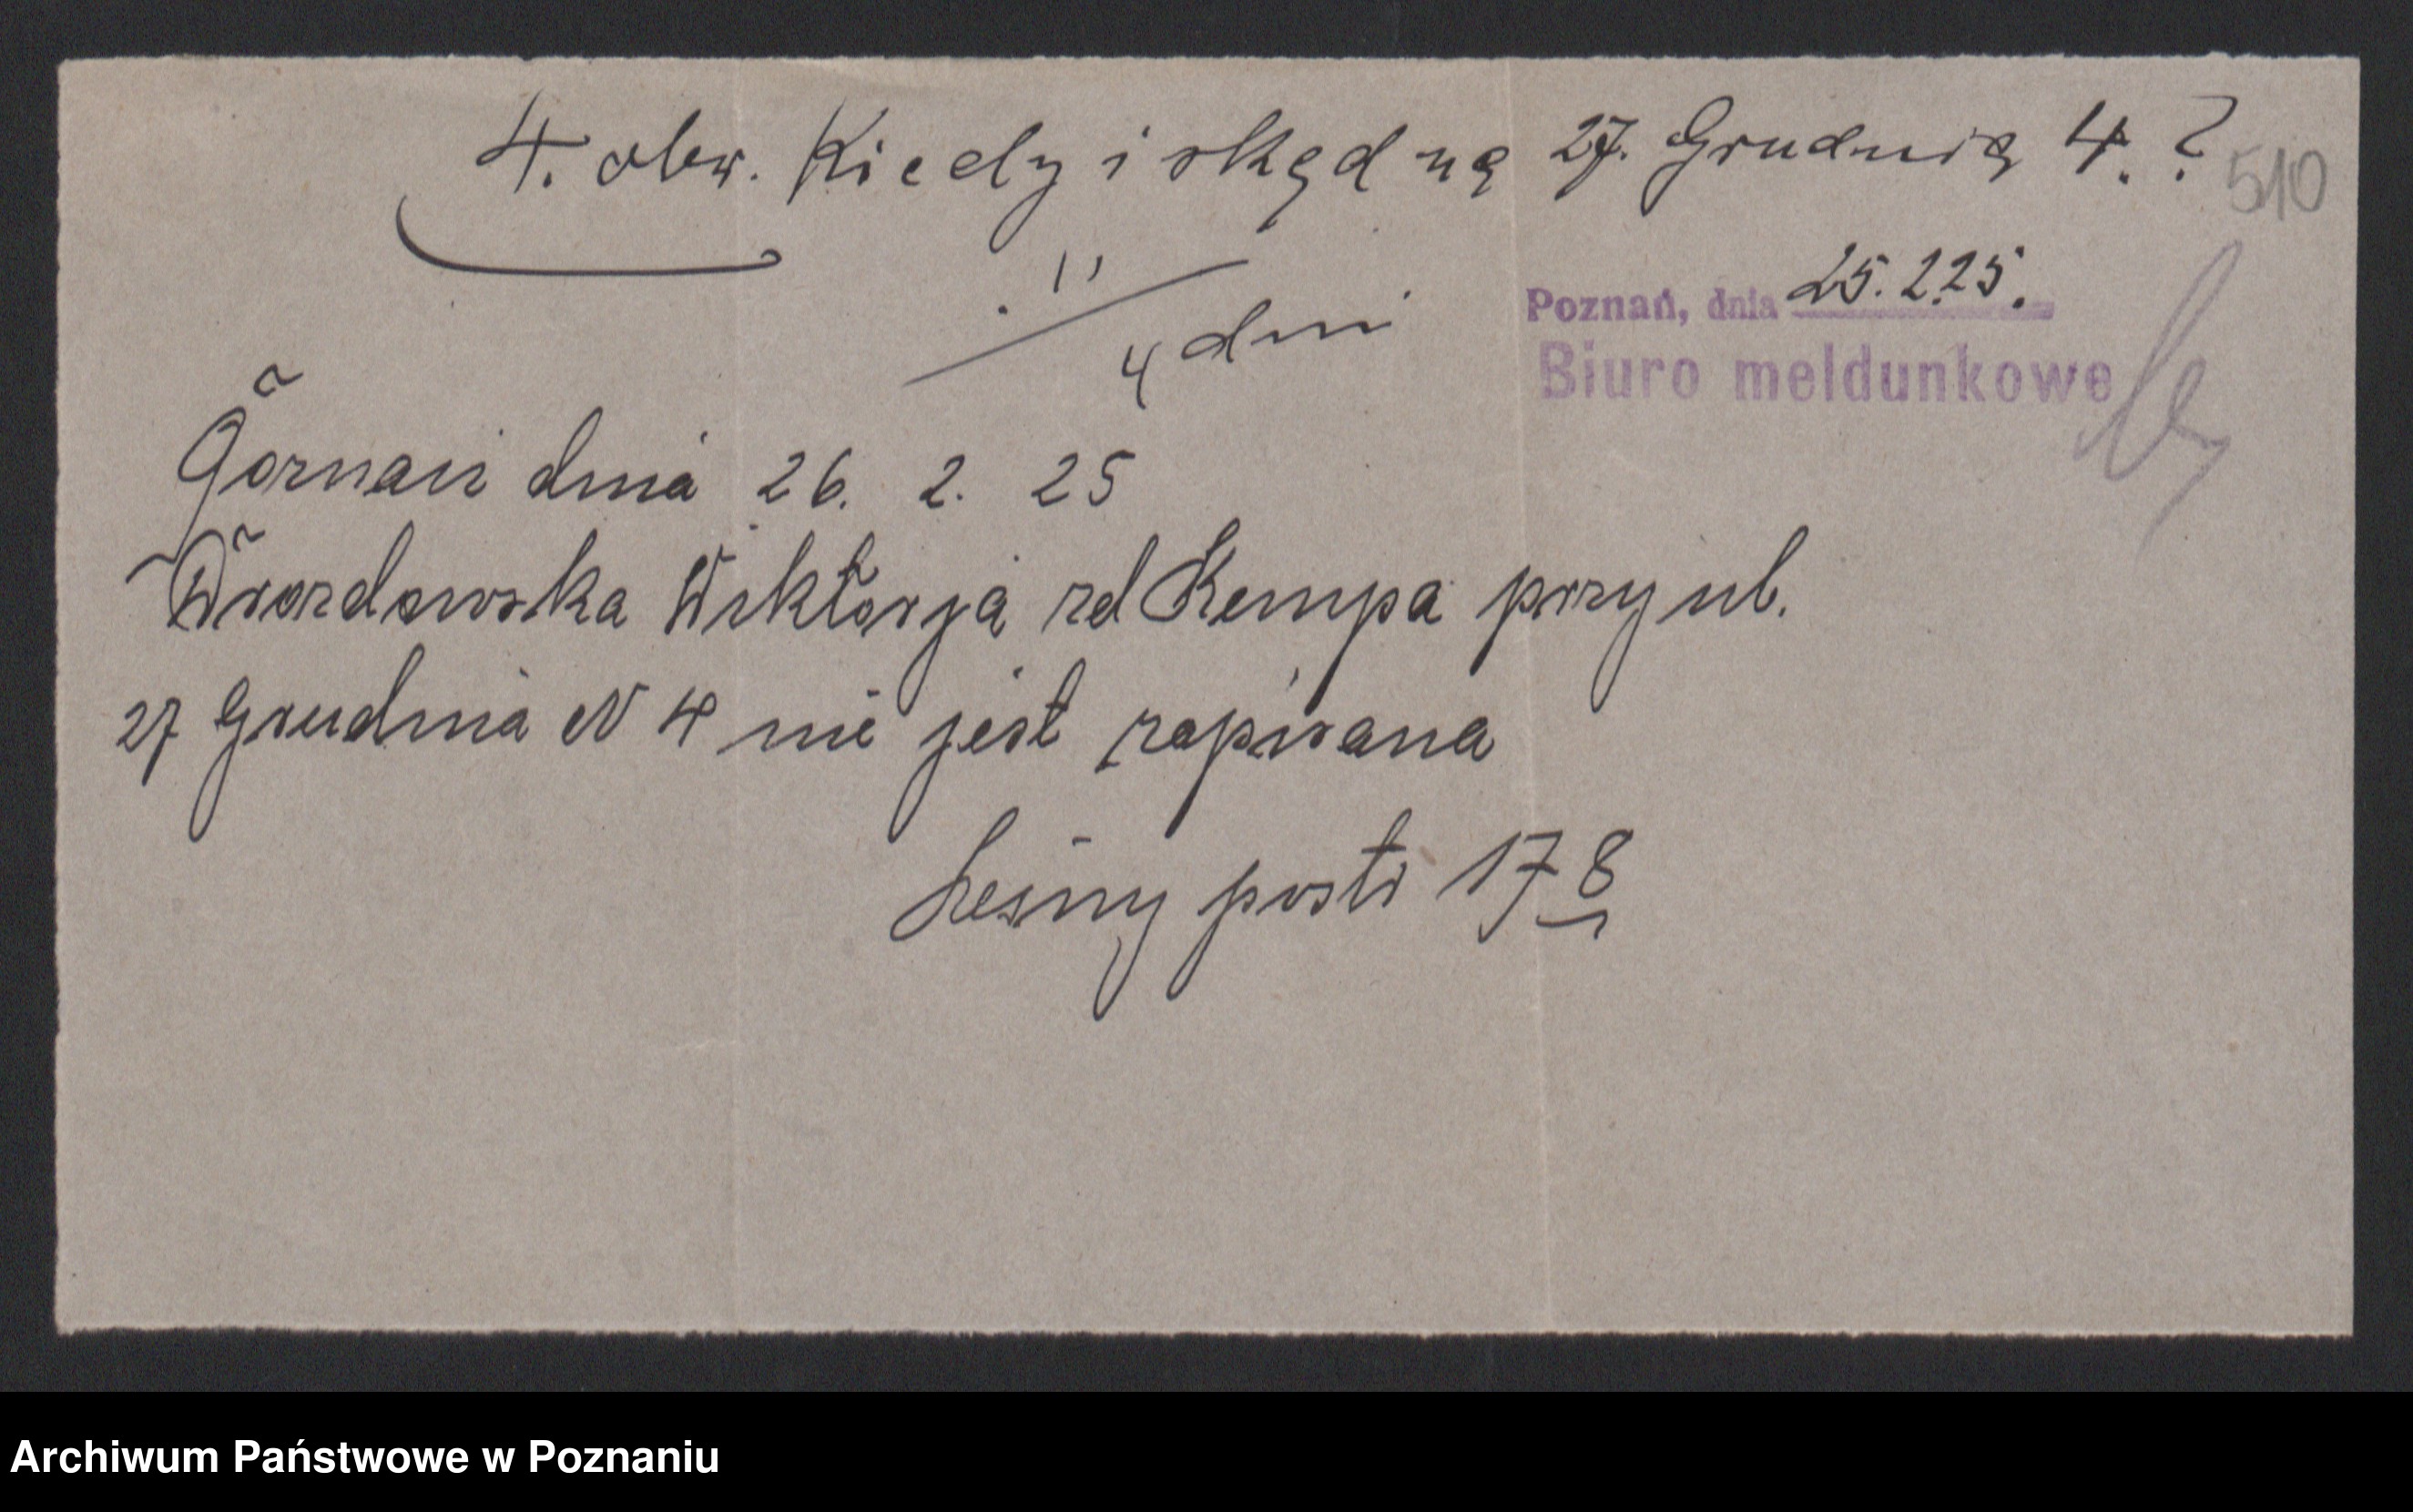 4. obw. Kiedy i skąd na 27. Grudnia 4. ?
510
4 dni
Poznań, dnia 25.2.25.
Biuro meldunkowe
Poznań dnia 26. 2. 25
Wiktorja zd Kempa przy ul.
27 Grudnia N 4 nie jest zapisana
Leśny post 178
Archiwum Państwowe w Poznaniu